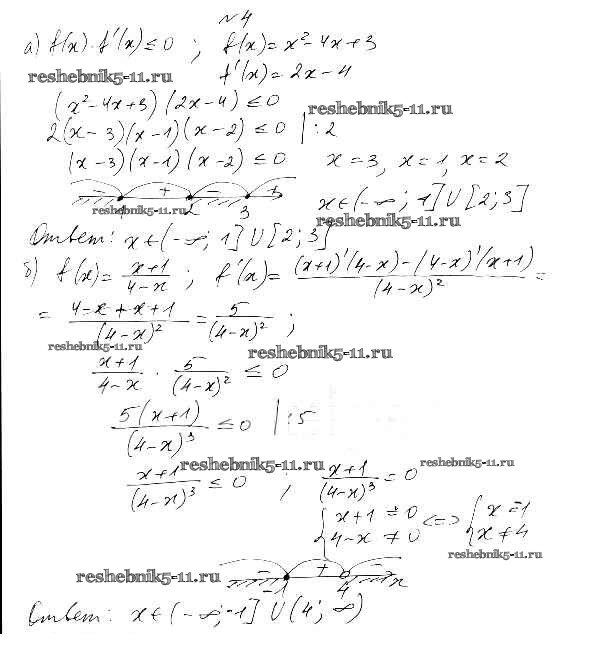 №4
а) f(x)·f'(x)≤0 ; f(x)=x²-4x+3
reshebnik5-11.ru f'(x)=2x-4
(x²-4x+3)(2x-4)≤0 reshebnik5-11.ru
2(x-3)(x-1)(x-2)≤0 |:2
(x-3)(x-1)(x-2)≤0 x=3, x=1, x=2
- + - +
reshebnik5-11.ru 1 2 3 x∈(-∞; 1]∪[2; 3]
reshebnik5-11.ru
Ответ: x∈(-∞; 1]∪[2; 3]
б) f(x)=(x+1)/(4-x) ; f'(x)=((x+1)'(4-x)-(4-x)'(x+1))/(4-x)² =
= (4-x+x+1)/(4-x)² = 5/(4-x)² ;
reshebnik5-11.ru reshebnik5-11.ru
(x+1)/(4-x) · 5/(4-x)² ≤ 0
5(x+1)/(4-x)³ ≤0 |:5
reshebnik5-11.ru reshebnik5-11.ru
(x+1)/(4-x)³ ≤ 0 ; (x+1)/(4-x)³ =0
{x+1=0 4-x≠0 <=> {x=-1 x≠4
reshebnik5-11.ru
reshebnik5-11.ru - + - x
-1 4
Ответ: x∈(-∞;-1]∪(4; ∞)